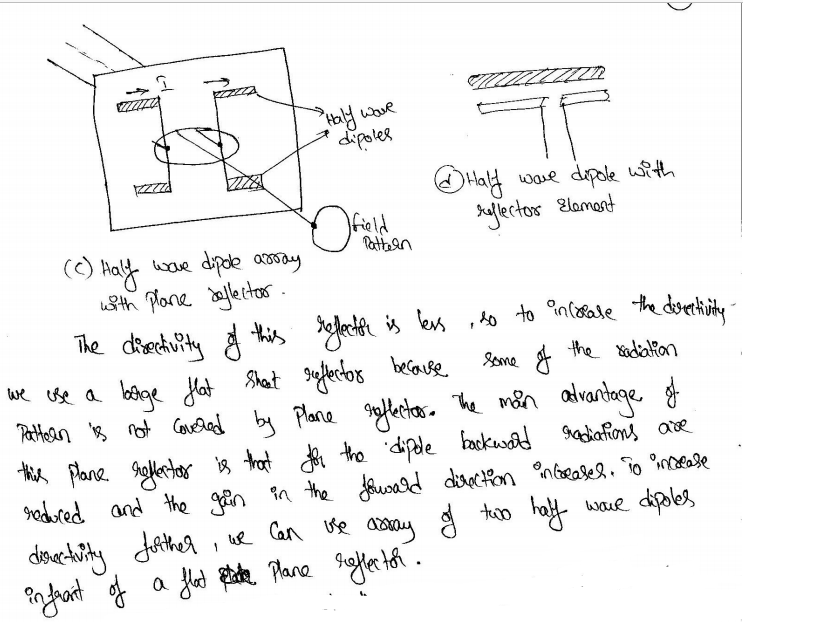 I
Half wave
dipoles
field
Pattern
(c) Half wave dipole array
with plane reflector.
(d) Half wave dipole with
reflector Element
The directivity of this reflector is less, so to increase the directivity
we use a large flat sheet reflector because some of the radiation
Pattern is not covered by plane reflector. The main advantage of
this plane reflector is that for the dipole backward radiations are
reduced and the gain in the forward direction increases. To increase
directivity further, we can use array of two half wave dipoles
infront of a flat plane reflector.